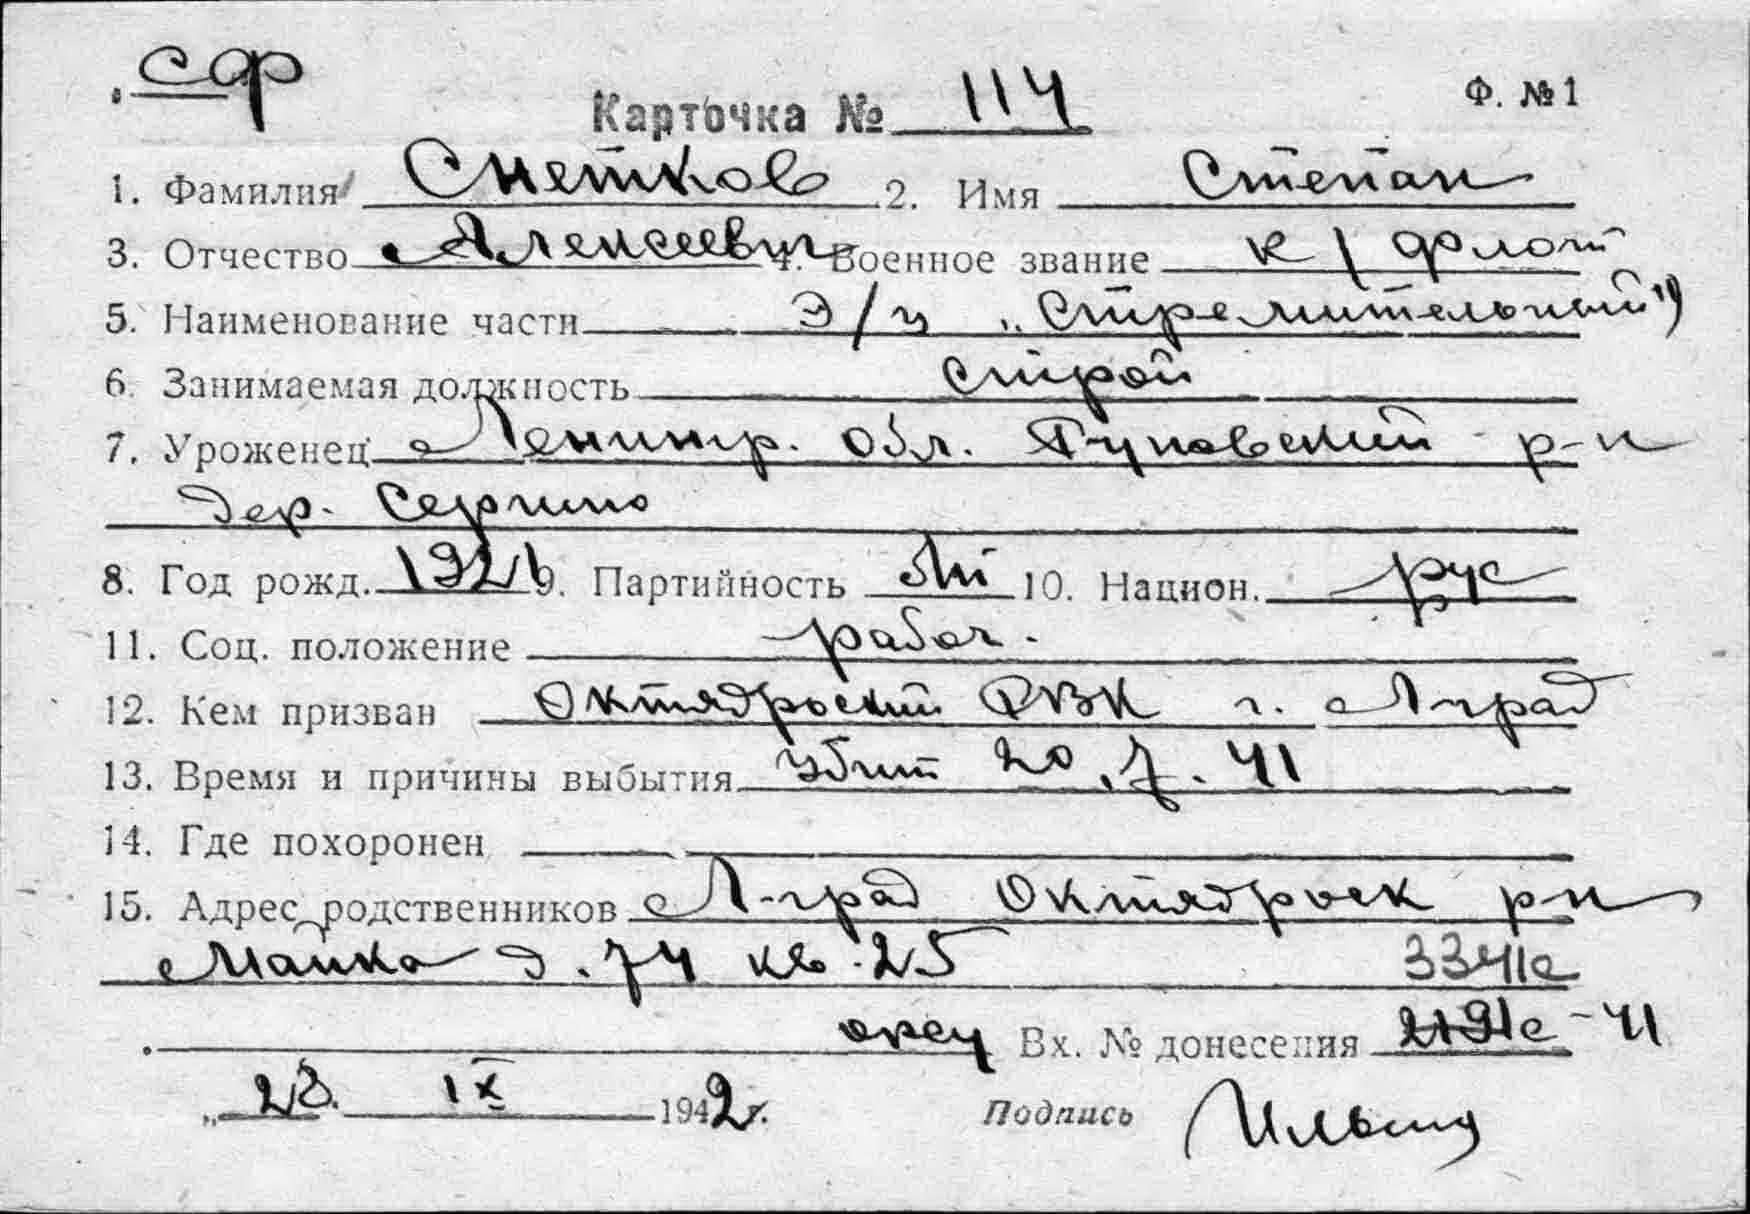 СФ
Карточка № 114 Ф. №1
1. Фамилия Снетков 2. Имя Степан
3. Отчество Алексеевич 4. Военное звание к/флот
5. Наименование части Э/м „Стремительный"
6. Занимаемая должность строй
7. Уроженец Ленингр. обл. р-н
дер.
8. Год рожд. 1921 9. Партийность 10. Национ. рус
11. Соц. положение рабоч.
12. Кем призван Октябрьский РВК г. Л-град
13. Время и причины выбытия Убит 20.7.41
14. Где похоронен
15. Адрес родственников Л-град Октябрьск р-н
д. 74 кв. 25 3341с
Вх. № донесения -41
„28. IX 1942г.
Подпись